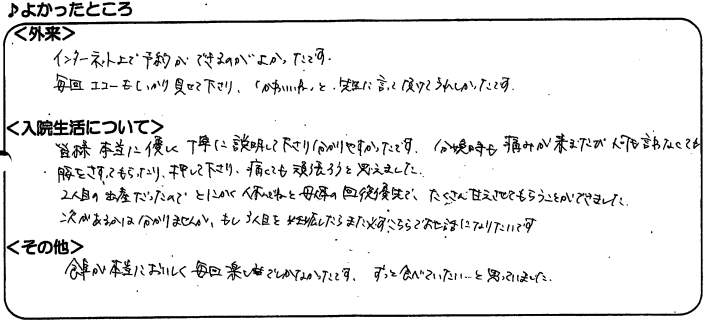 ♪よかったところ
<外来>
インターネット上で予約ができるのがよかったです。
毎回エコーもしっかり見せて下さり、「かわいいね」と先生に言って頂けてうれしかったです。
<入院生活について>
皆様本当に優しく丁寧に説明して下さり分かりやすかったです。分娩時も痛みが来たときが何も言わなくても
腰をさすってもらったり、押して下さり、痛くても頑張ろうと思えました。
2人目の出産だったのでとにかく休んでねと母体の回復優先で、たくさん甘えさせてもらうことができました。
次があるかは分かりませんが、もし3人目を妊娠したらまた必ずこちらでお世話になりたいです
<その他>
食事が本当においしく毎回楽しみでしかなかったです。ずっと食べていたい…と思っていました。